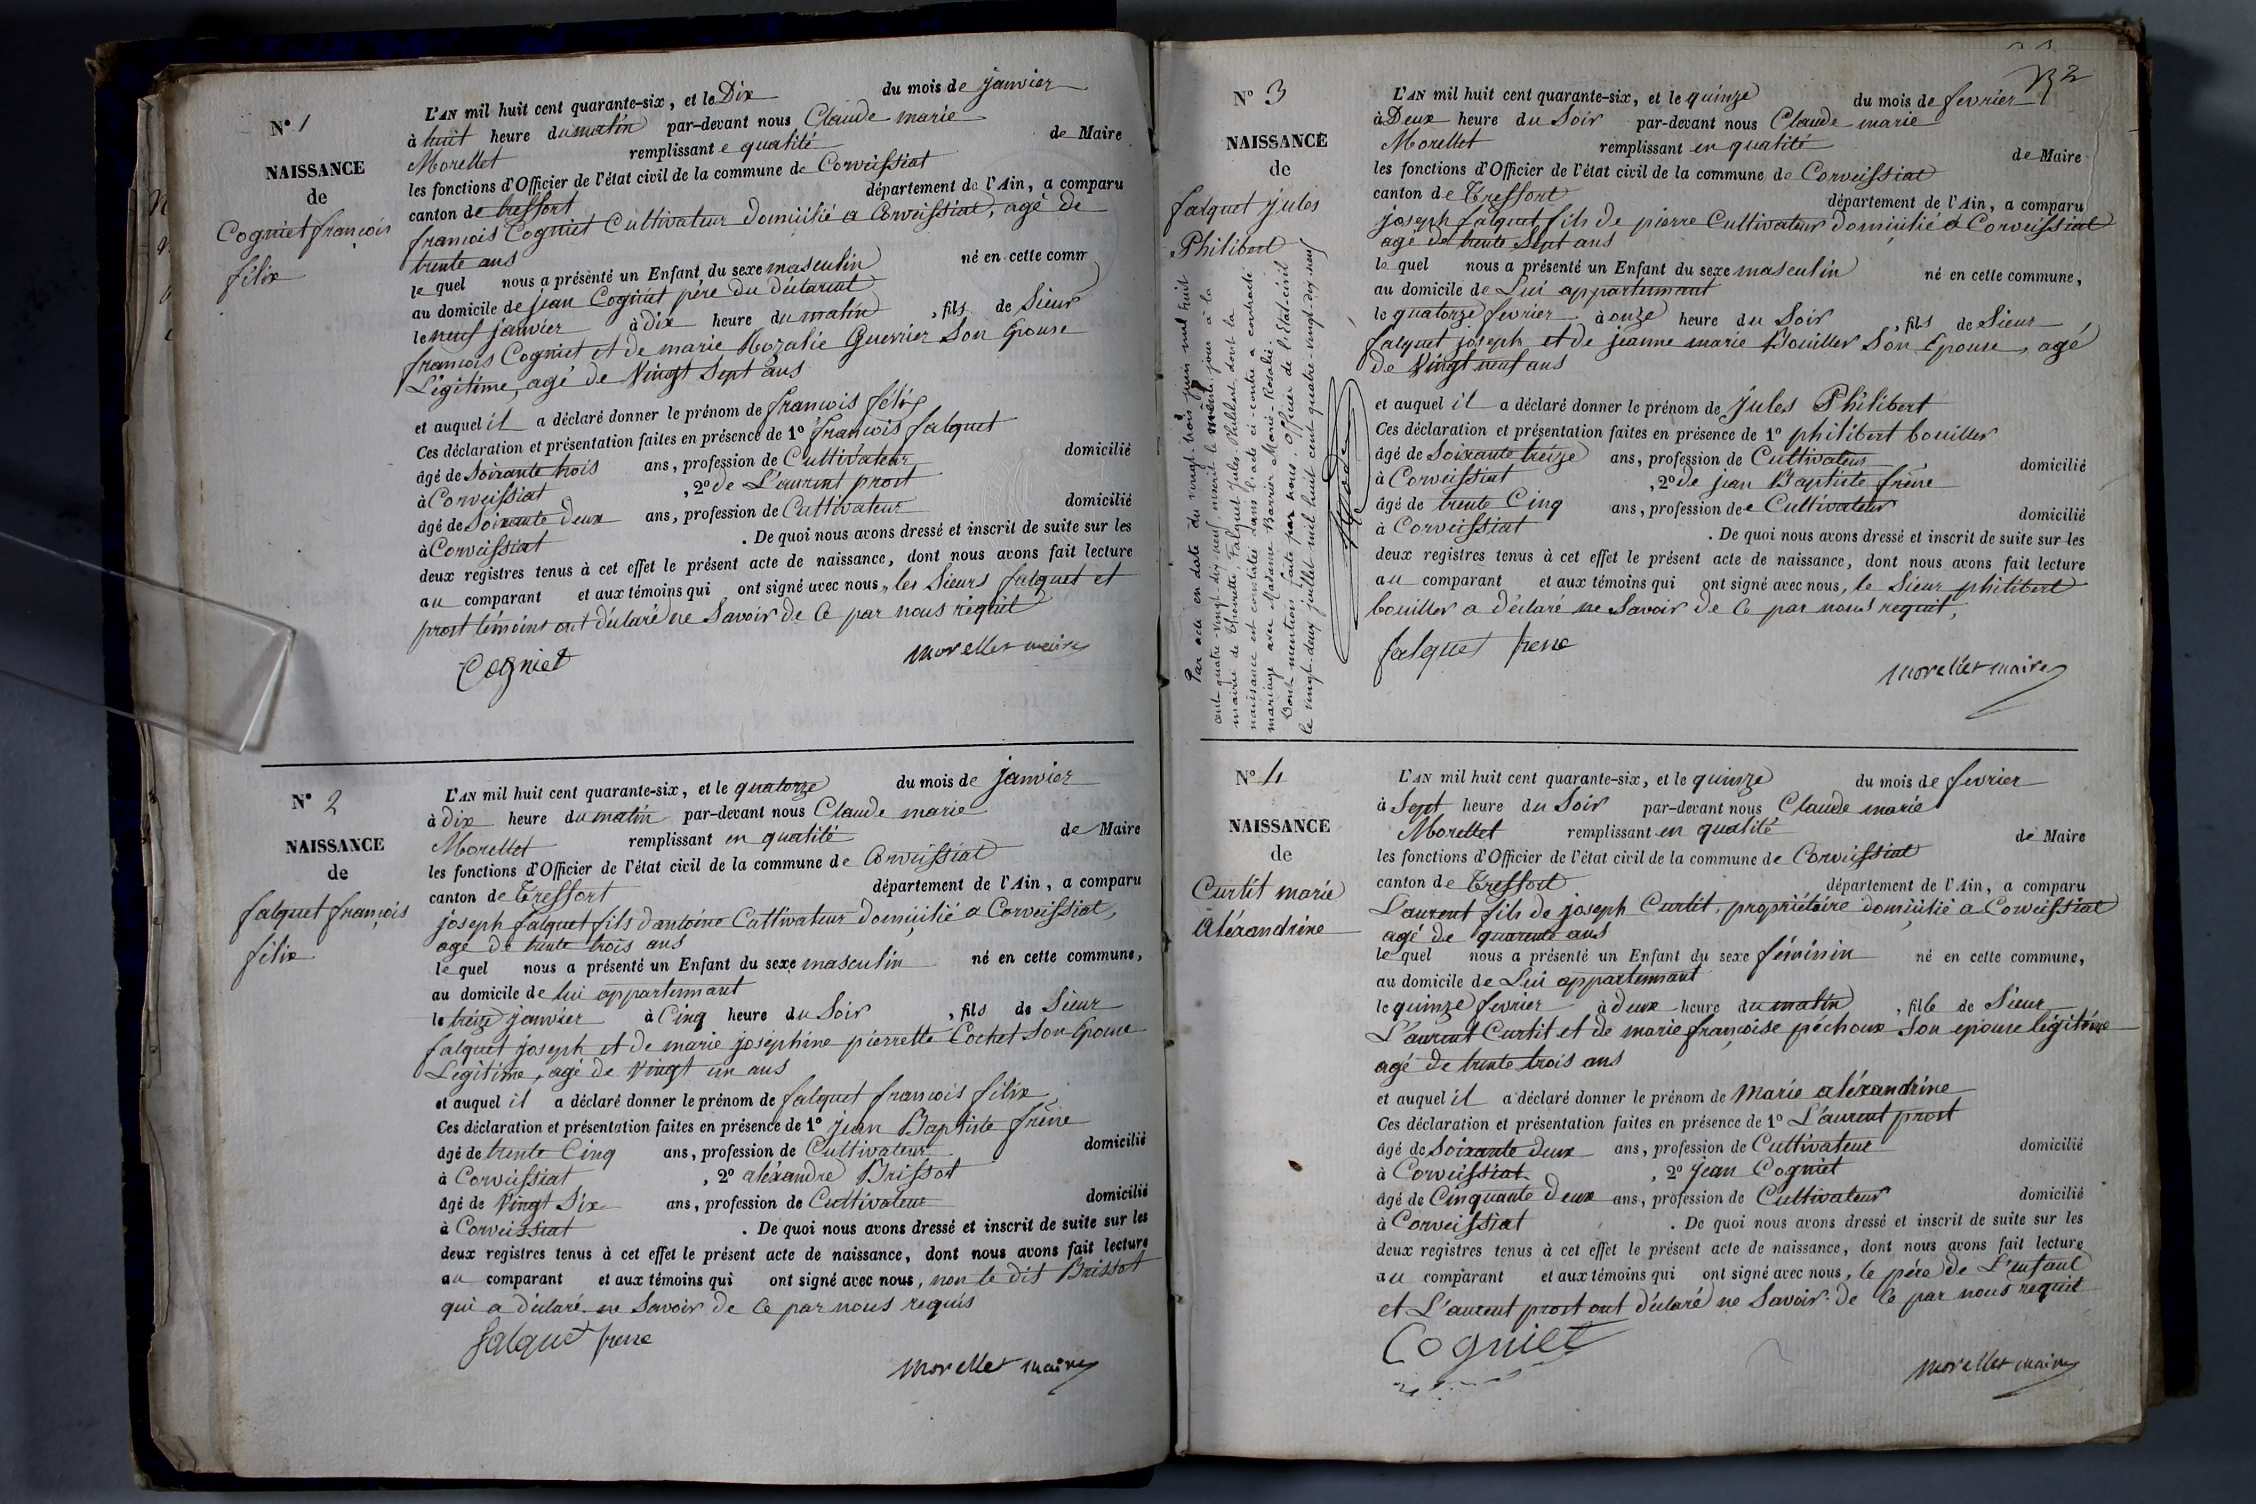 N° 1
NAISSANCE
de
Cogniet françois
félix
L'AN mil huit cent quarante-six, et le Dix du mois de janvier
à huit heure du matin par-devant nous Claude marie
Morellet remplissant e qualité de Maire
les fonctions d'Officier de l'état civil de la commune de Corveissiat
canton de treffort département de l'Ain, a comparu
françois Cogniet Cultivateur domicilié a Corveissiat, agé de
trente ans
le quel nous a présenté un Enfant du sexe masculin né en cette comm
au domicile de jean Cogniet père du déclarant
le neuf janvier à dix heure du matin, fils de Sieur
françois Cogniet et de marie Rozalie Guerrier Son Epouse
Légitime, agé de Vingt Sept ans
et auquel il a déclaré donner le prénom de françois félix
Ces déclaration et présentation faites en présence de 1° françois falquet
âgé de Soixante trois ans, profession de Cultivateur domicilié
à Corveissiat, 2° de L'aurent prost
âgé de Soixante deux ans, profession de Cultivateur domicilié
à Corveissiat. De quoi nous avons dressé et inscrit de suite sur les
deux registres tenus à cet effet le présent acte de naissance, dont nous avons fait lecture
au comparant et aux témoins qui ont signé avec nous, les Sieurs falquet et
prost témoins ont déclaré ne Savoir de Ce par nous requit
Cogniet
morellet maire
N° 2
NAISSANCE
de
falquet françois
félix
L'AN mil huit cent quarante-six, et le quatorze du mois de janvier
à dix heure du matin par-devant nous Claude marie
Morellet remplissant en qualité de Maire
les fonctions d'Officier de l'état civil de la commune de Corveissiat
canton de Treffort département de l'Ain, a comparu
joseph falquet fils d'antoine Cultivateur domicilié a Corveissiat,
agé de trente trois ans
le quel nous a présenté un Enfant du sexe masculin né en cette commune,
au domicile de lui appartennant
le treize janvier à Cinq heure du Soir, fils de Sieur
falquet joseph et de marie joséphine pierrette Cochet Son Epouse
Légitime, agé de Vingt un ans
et auquel il a déclaré donner le prénom de falquet françois félix
Ces déclaration et présentation faites en présence de 1° jean Baptiste frêne
âgé de trente Cinq ans, profession de Cultivateur domicilié
à Corveissiat, 2° aléxandre Brissot
âgé de Vingt Six ans, profession de Cultivateur domicilié
à Corveissiat. De quoi nous avons dressé et inscrit de suite sur les
deux registres tenus à cet effet le présent acte de naissance, dont nous avons fait lecture
au comparant et aux témoins qui ont signé avec nous, non le dit Brissot
qui a déclaré ne Savoir de Ce par nous requis
falquet frene
morellet maire
32
N° 3
NAISSANCE
de
falquet jules
Philibert
Par acte en date du vingt-trois juin mil huit
cent quatre-vingt-dix-neuf, inscrit le même jour à la
mairie de Falquet Jules-Philibert dont la
naissance est constatée dans l'acte ci-contre a contracté
mariage avec Madame Barrier Marie-Rosalie.
Dont mention faite par nous, Officier de l'Etat-civil
le vingt-deux juillet mil huit cent quatre-vingt-dix-neuf
L'AN mil huit cent quarante-six, et le quinze du mois de fevrier
à Deux heure du Soir par-devant nous Claude marie
Morellet remplissant en qualité de Maire
les fonctions d'Officier de l'état civil de la commune de Corveissiat
canton de Treffort département de l'Ain, a comparu
joseph falquet fils de pierre Cultivateur domicilié a Corveissiat
agé de trente Sept ans
le quel nous a présenté un Enfant du sexe masculin né en cette commune,
au domicile de Lui appartennant
le quatorze fevrier à onze heure du Soir, fils de Sieur
falquet joseph et de jeanne marie Bouiller Son Epouse, agé
de Vingt neuf ans
et auquel il a déclaré donner le prénom de Jules Philibert
Ces déclaration et présentation faites en présence de 1° philibert bouiller
âgé de Soixante treize ans, profession de Cultivateur domicilié
à Corveissiat, 2° de jean Baptiste frêne
âgé de trente Cinq ans, profession de Cultivateur domicilié
à Corveissiat. De quoi nous avons dressé et inscrit de suite sur les
deux registres tenus à cet effet le présent acte de naissance, dont nous avons fait lecture
au comparant et aux témoins qui ont signé avec nous, le Sieur philibert
bouiller a déclaré ne Savoir de Ce par nous requit,
falquet frene
morellet maire
N° 4
NAISSANCE
de
Curtit marie
aléxandrine
L'AN mil huit cent quarante-six, et le quinze du mois de fevrier
à Sept heure du Soir par-devant nous Claude marie
Morellet remplissant en qualité de Maire
les fonctions d'Officier de l'état civil de la commune de Corveissiat
canton de Treffort département de l'Ain, a comparu
Laurent fils de joseph Curtit, propriétaire domicilié a Corveissiat
agé de quarente ans
le quel nous a présenté un Enfant du sexe féminin né en cette commune,
au domicile de Lui appartennant
le quinze fevrier à deux heure du matin, fille de Sieur
L'aurent Curtit et de marie françoise péchoux Son epouse légitime
agé de trente trois ans
et auquel il a déclaré donner le prénom de Marie aléxandrine
Ces déclaration et présentation faites en présence de 1° L'aurent prost
âgé de Soixante deux ans, profession de Cultivateur domicilié
à Corveissiat, 2° jean Cogniet
âgé de Cinquante deux ans, profession de Cultivateur domicilié
à Corveissiat. De quoi nous avons dressé et inscrit de suite sur les
deux registres tenus à cet effet le présent acte de naissance, dont nous avons fait lecture
au comparant et aux témoins qui ont signé avec nous, le père de L'enfant
et L'aurent prost ont déclaré ne Savoir de Ce par nous requit
Cogniet
morellet maire